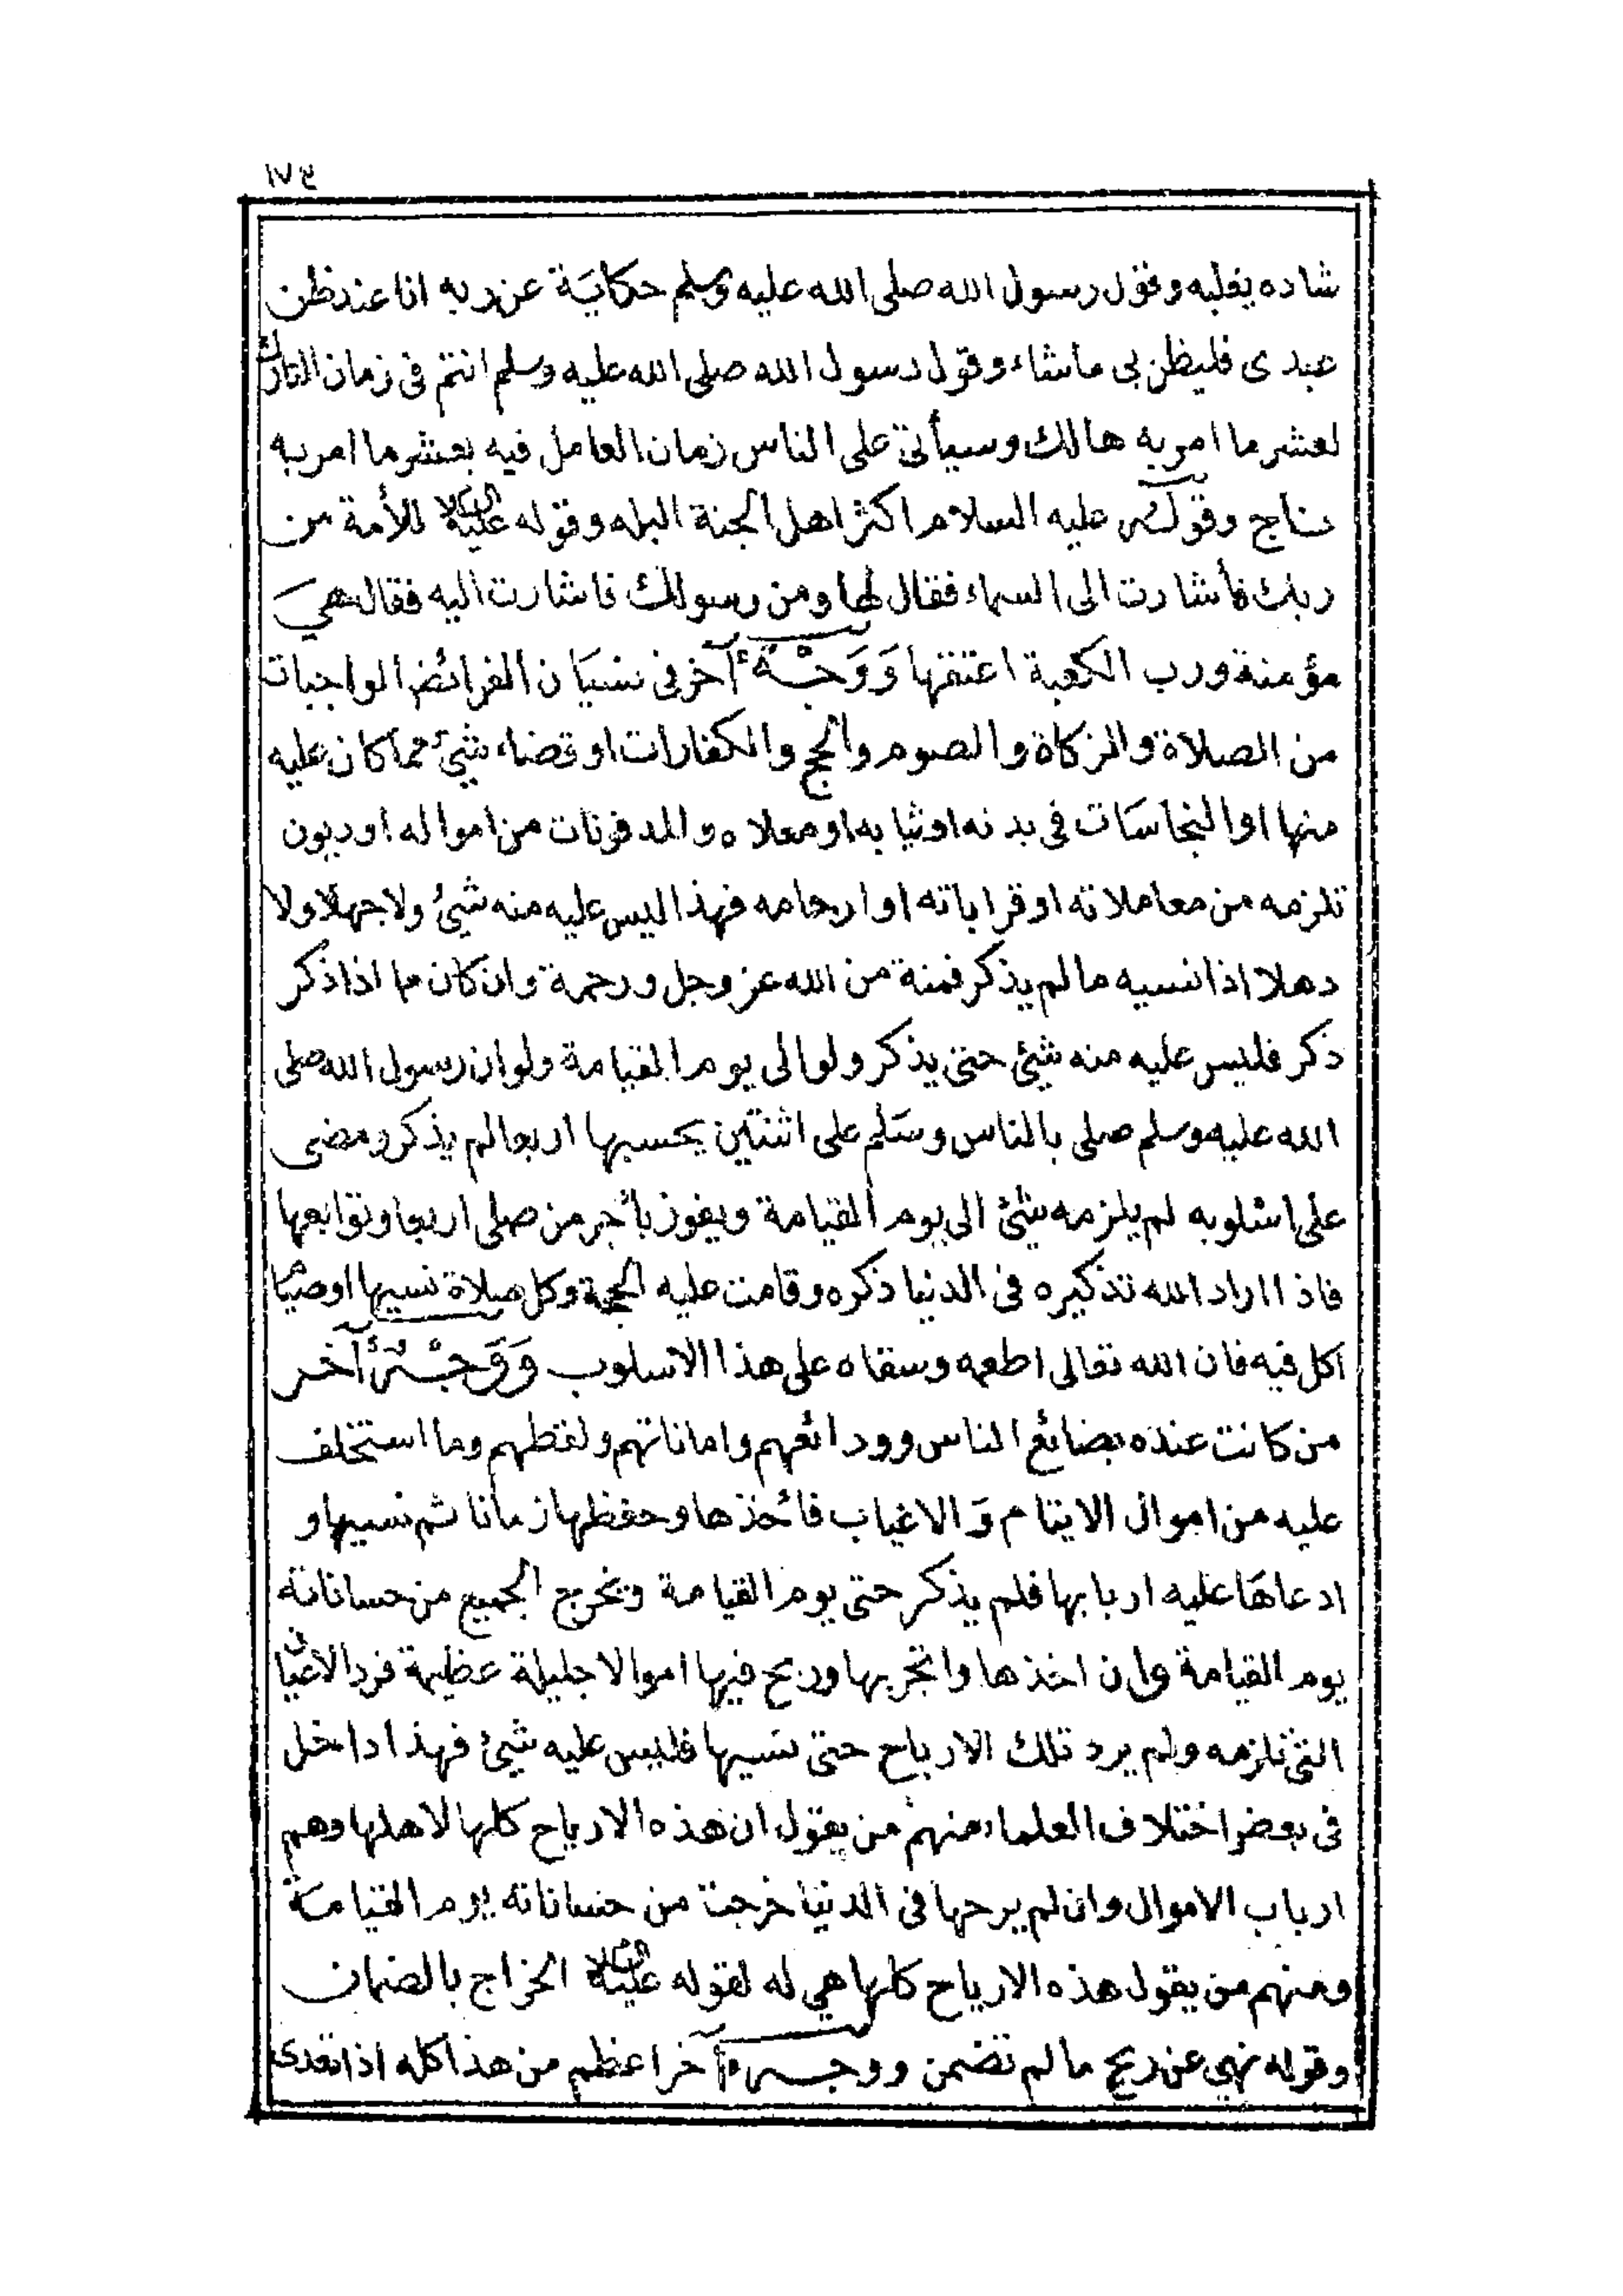 ١٧٤
شاده يغلبه وقول رسول الله صلى الله عليه وسلم حكايَة عن ربه انا عند ظن
عبدى فليظن بى ماشاء وقول رسول الله صلى الله عليه وسلم انتم فى زمان التارك
لعشر ما امر به هالك وسيأتى على الناس زمان العامل فيه بعشر ما امر به
ناج وقوله عليه السلام اكثر اهل الجنة البله وقوله عليه السلام للأمة من
ربك فأشارت الى السماء فقال لها ومن رسولك فاشارت اليه فقال هي
مؤمنة ورب الكعبة اعتقها وَوَجْهٌ آخر فى نسيَان الفرائض الواجبات
من الصلاة والزكاة والصوم والحج والكفارات او قضاء شيئ مما كان عليه
منها او النجاسَات فى بدنه او ثيابه او مصلاه والمدفونات من امواله او ديون
تلزمه من معاملاته او قراباته او ارحامه فهذا ليس عليه منه شيئ ولا جهلا ولا
دهلا اذا نسيه ما لم يذكر فمنة من الله عز وجل ورحمة وان كان مما اذا ذكر
ذكر فليس عليه منه شيئ حتى يذكر ولو الى يوم القيامة ولو ان رسول الله صلى
الله عليه وسلم صلى بالناس وسَلم على اثنتين يحسبها اربعا لم يذكر ومضى
على اسلوبه لم يلزمه شيئ الى يوم القيامة ويفوز بأجر من صلى اربعا وتوابعها
فاذا اراد الله تذكيره فى الدنيا ذكره وقامت عليه الحجة وكل صلاة نسيها او صيام
اكل فيه فان الله تعالى اطعمه وسقاه على هذا الاسلوب وَوَجْهٌ آخر
من كانت عنده بضائع الناس وودائعهم واماناتهم ولقطهم وما استخلف
عليه من اموال الايتام وَالاغياب فأخذها وحفظها زمانا ثم نسيها و
ادعاهَا عليه اربابها فلم يذكر حتى يوم القيامة وتخرج الجميع من حساناته
يوم القيامة وان اخذها واتجر بها وربح فيها اموالا جليلة عظيمة فرد الاعيان
التى تلزمه ولم يرد تلك الارباح حتى نسيها فليس عليه شيئ فهذا داخل
فى بعض اختلاف العلماء منهم من يقول ان هذه الارباح كلها لاهلها وهم
ارباب الاموال وان لم يرحها فى الدنيا خرجت من حساناته يوم القيامة
ومنهم من يقول هذه الارباح كلها هي له لقوله عليه السلام الخراج بالضمان
وقوله نهى عن ربح ما لم تضمن ووجه آخر اعظم من هذا كله اذا تعدى